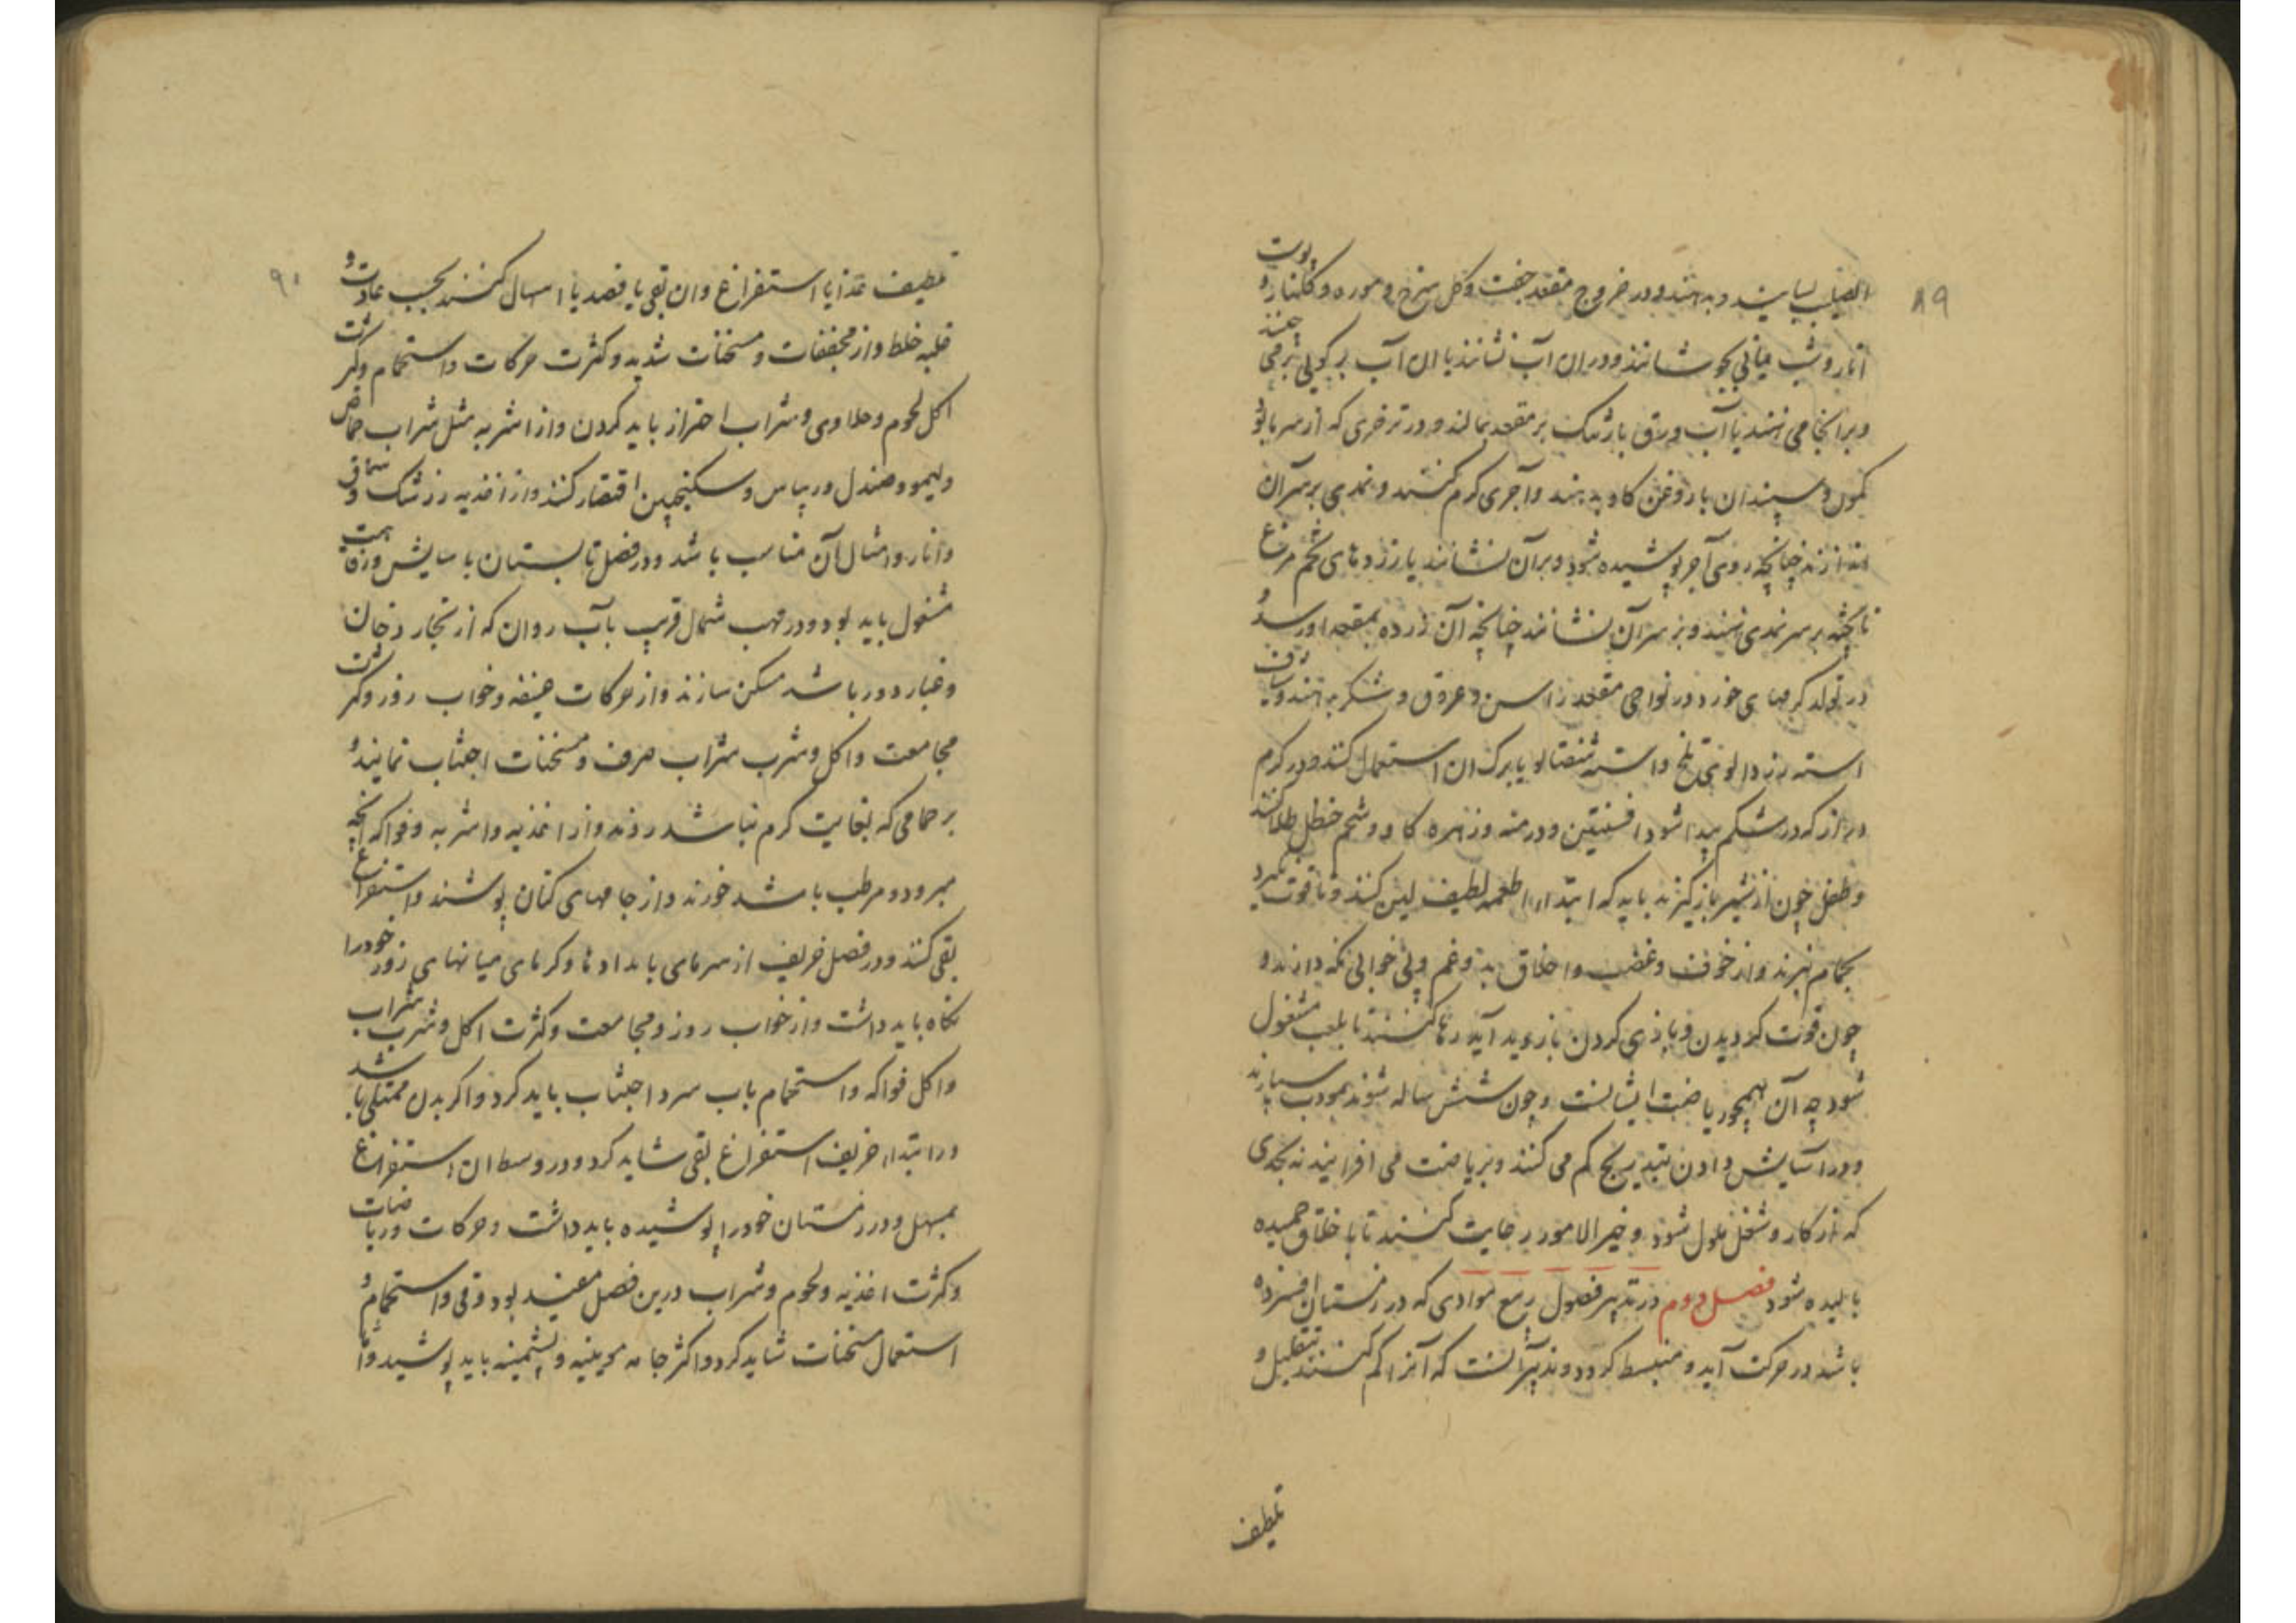 ۸۹
الصلیب بسایند و بدهند و در خروج مقعد جفت و کل سرخ و موره و کلنار و پوست
انار و شب یمانی بجوشانند و در ان آب نشانند یا ان آب بر کوبی نرمی چند
و برانجا می نهند یا آب ورق بارتنگ بر مقعد بمالند و در تزخری که از سرما بود
کمون و سپندان با روغن کاو بدهند و آجری کرم کنند و نمدی بر سر آن
اندازند چنانچه روی آجر پوشیده شود و بر آن نشانند یا زردهای تخم مرغ
نا پخته بر سر نمدی نهند و بر سر آن نشانند چنانچه آن زرده بمقعد او رسد و
در تولد کرمهای خورد در نواحی مقعد راسن و عروق و شکر بدهند و شیاف
استه زردالوی تلخ و استه شفتالو یا برک ان استعمال کنند و در کرم
دراز که در شکم پیدا شود افسنتین و درمنه و زهره کاو و شحم حنظل طلا کنند
و طفل چون از شیر باز کیرند باید که ابتدا با اطعمه لطیف لین کنند و تا قوت نکیرد
بحمام نبرند و از خوف و غضب و اخلاق بد و غم و بی خوابی نکه دارند و
چون قوت کردیدن و بازی کردن بازدید آید رها کنند تا بلعب مشغول
شود چه آن همچو ریاضت ایشانست و چون شش ساله شوند بمودب سپارند
و در آسایش دادن بتدریج کم می کنند و بریاضت می افزایند نه بحدی
که از کار و شغل ملول شود و خیر الامور رعایت کنند تا با خلاق حمیده
بالیده شود فصل دوم در تدبیر فصول ربیع موادی که در زمستان افسرده
باشد در حرکت آید و منبسط کردد و تدبیر آنست که آنرا کم کنند بتقلیل و
تلطیف
۹۰
تلطیف غذا یا استفراغ و ان بقی یا فصد یا اسهال کنند بحسب عادت و
غلبه خلط و از مجففات و مسخنات شدید و کثرت حرکات و استحمام و کثرت
اکل لحوم و حلاوی و شراب احتراز باید کردن و از اشربه مثل شراب حماض
و لیمو و صندل و ریباس و سکنجبین اقتصار کنند و از اغذیه زرشک و سماق
و انار و امثال آن مناسب باشد و در فصل تابستان با سایش و رفاهت
مشغول باید بود و در مهب شمال قریب بآب روان که از بخار دخان
و غبار دور باشد مسکن سازند و از حرکات عنیفه و خواب روز و کثرت
مجامعت و اکل و شرب شراب صرف و مسخنات اجتناب نمایند و
بر حمامی که بغایت کرم نباشد روند و از اغذیه و اشربه و فواکه آنچه
مبرود و مرطب باشد خورند و از جامهای کتان پوشند و استفراغ
بقی کنند و در فصل خریف از سرمای بامدادها و کرمای میانهای روز خود را
نکاه باید داشت و از خواب روز و مجامعت و کثرت اکل و شرب شراب
و اکل فواکه و استحمام باب سرد اجتناب باید کرد و اکر بدن ممتلی باشد
در ابتداء خریف استفراغ بقی شاید کرد و در وسط ان استفراغ
بمسهل و در زمستان خود را پوشیده باید داشت و حرکات و ریاضات
و کثرت اغذیه و لحوم و شراب درین فصل مفید بود و قی و استحمام و
استعمال مسخنات شاید کرد و اکثر جامه پشمینه باید پوشید و اما